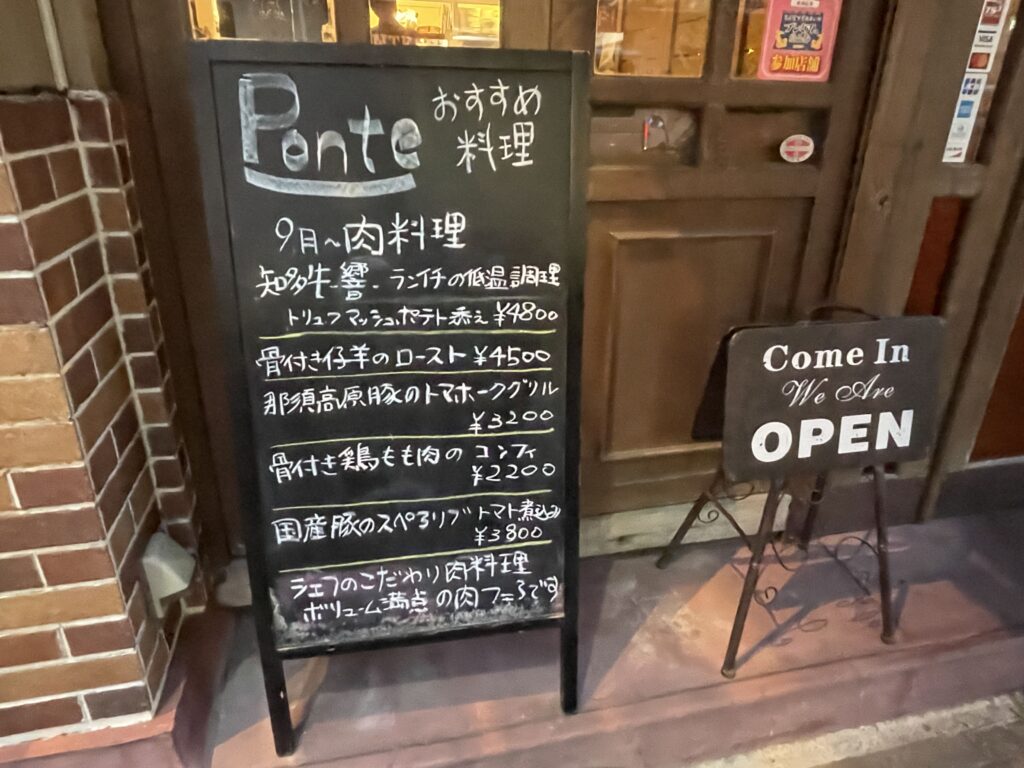 Ponte おすすめ
料理
9月〜肉料理
知多牛-響-ランイチの低温調理
トリュフマッシュポテト添え ¥4800
骨付き仔羊のロースト ¥4500
那須高原豚のトマホークグリル
¥3200
骨付き鶏もも肉の コンフィ
¥2200
国産豚のスペアリブ トマト煮込み
¥3800
シェフのこだわり肉料理
ボリューム満点の肉フェアです
Come In
We Are
OPEN
参加店舗
VISA
JCB